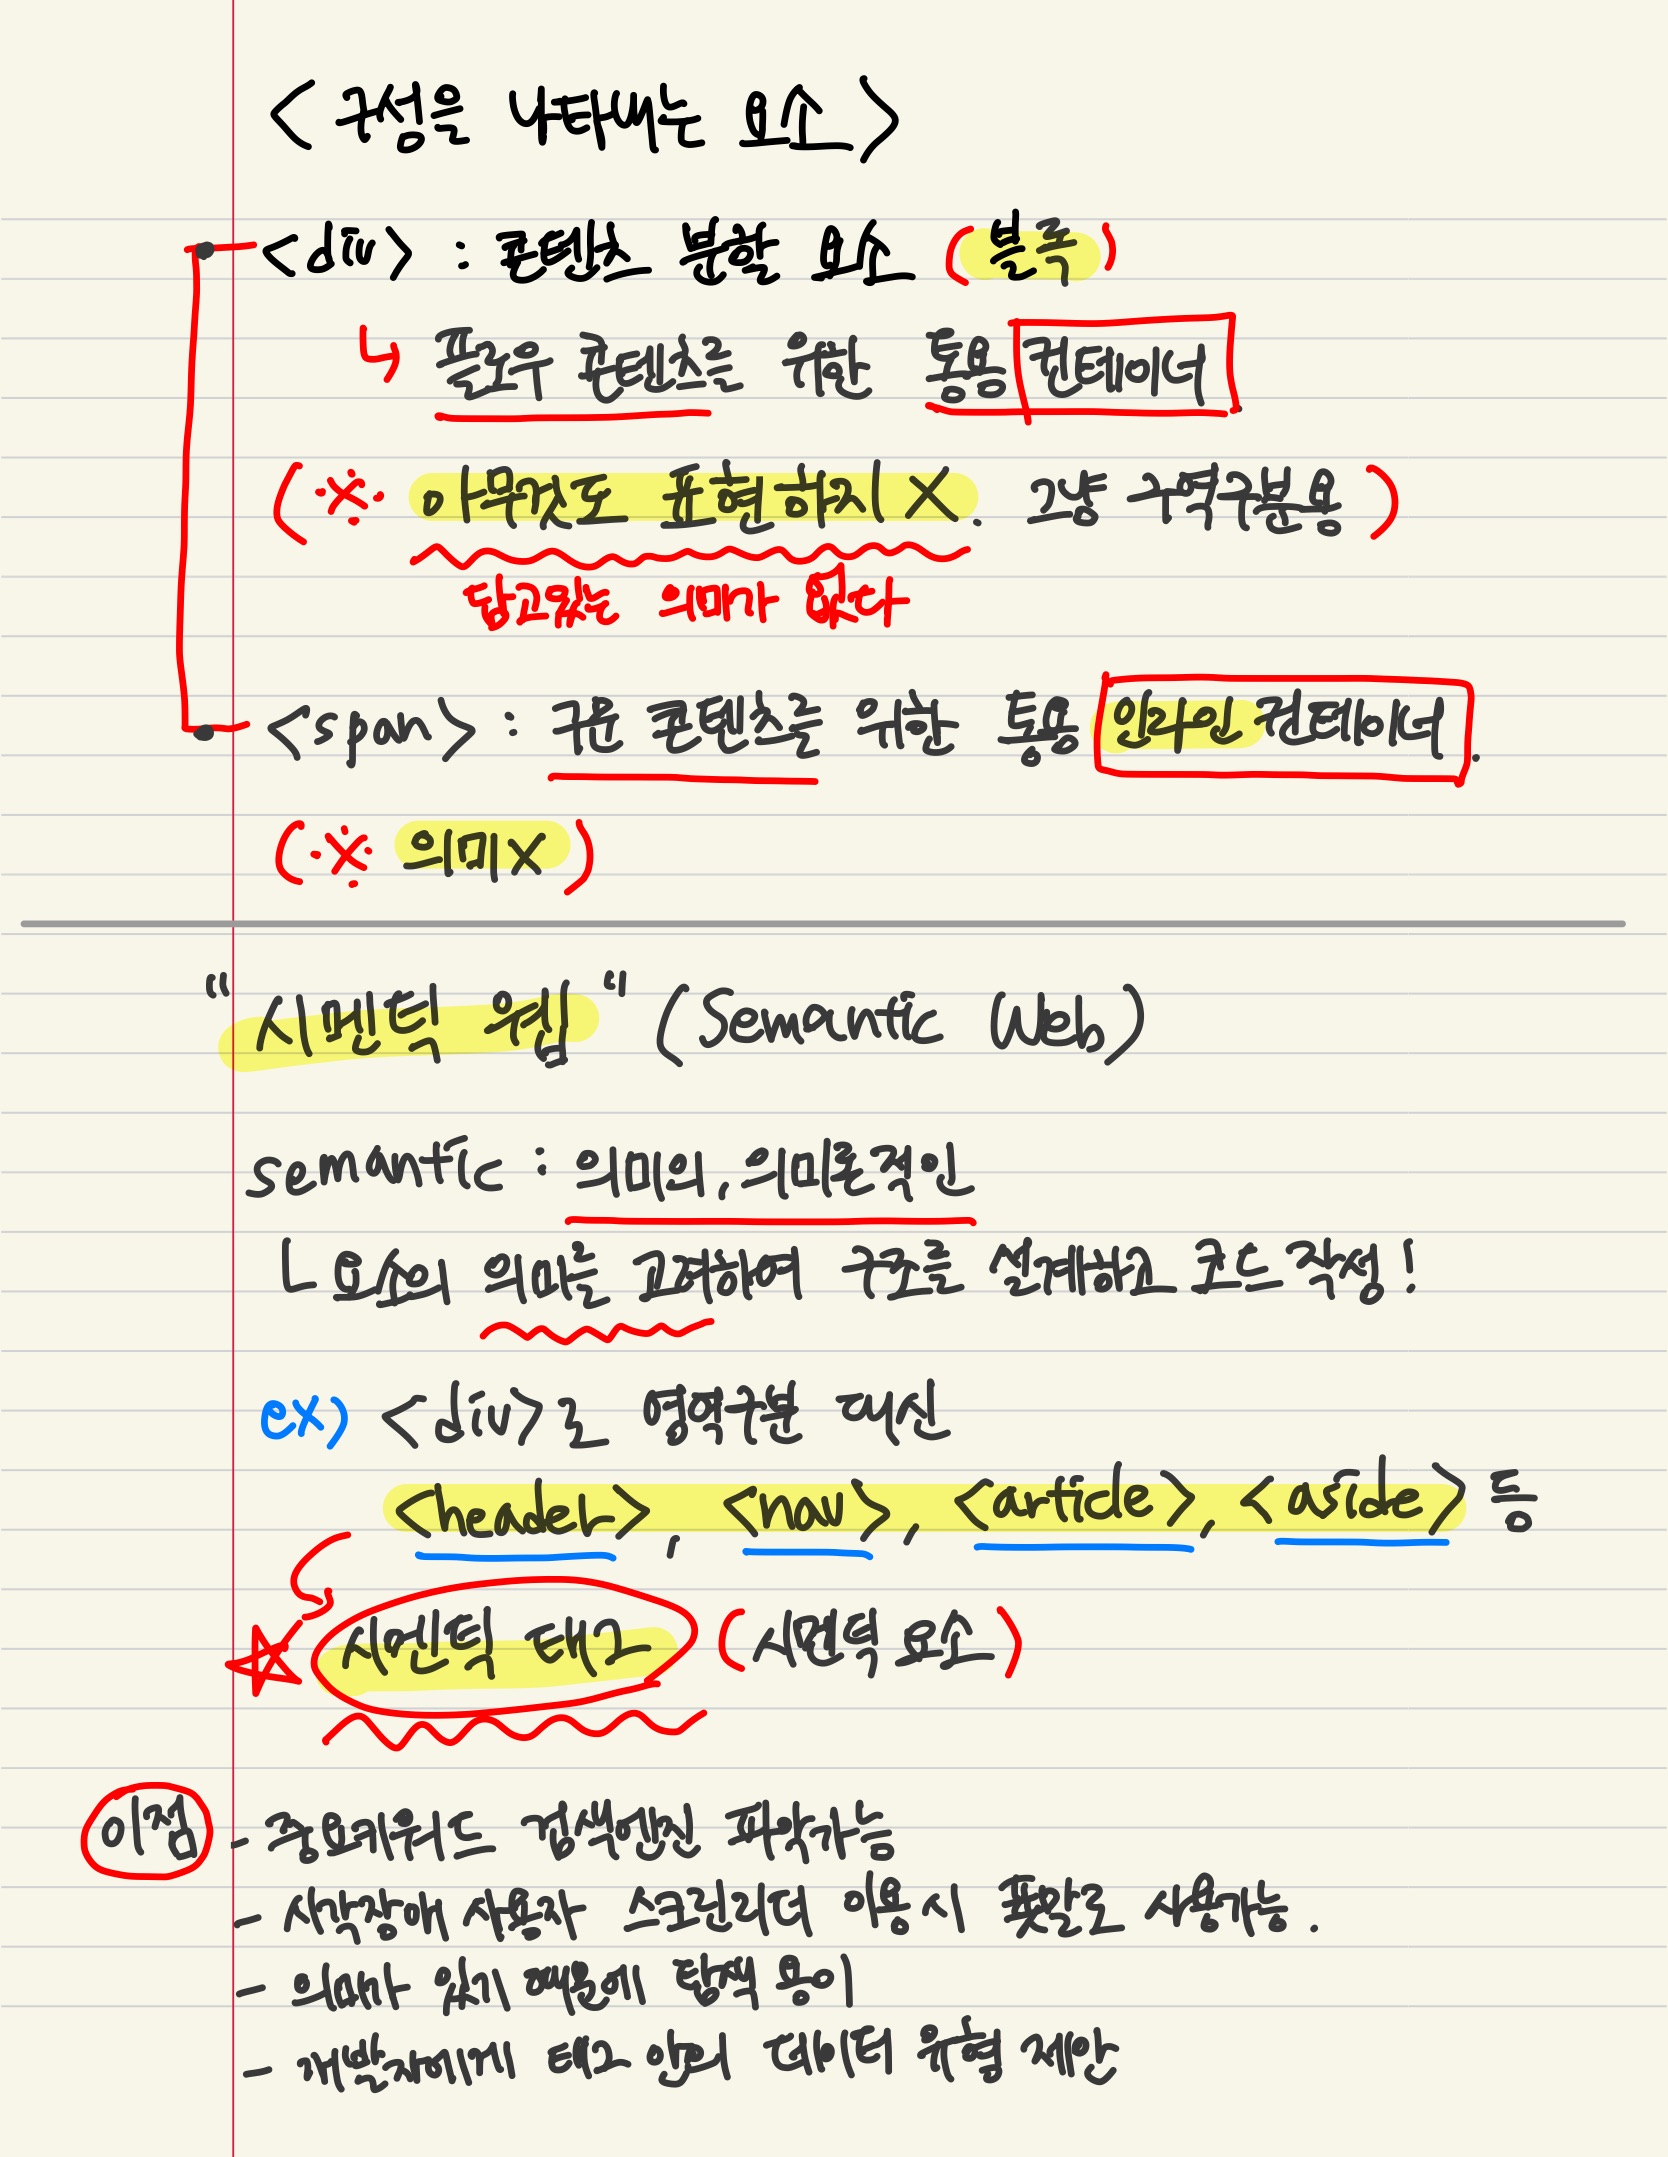 <구성을 나타내는 요소>
<div> : 콘텐츠 분할 요소 (블록)
↳ 플로우 콘텐츠를 위한 통용 컨테이너
(※ 아무것도 표현하지 X. 그냥 구역구분용)
담고있는 의미가 없다
<span> : 구문 콘텐츠를 위한 통용 인라인 컨테이너.
(※ 의미X)
"시멘틱 웹" (Semantic Web)
semantic : 의미의, 의미론적인
ㄴ 요소의 의미를 고려하여 구조를 설계하고 코드 작성!
ex) <div>로 영역구분 대신
<header>, <nav>, <article>, <aside> 등
☆ 시멘틱 태그 (시멘틱 요소)
이점 - 중요키워드 검색엔진 파악가능
- 시각장애 사용자 스크린리더 이용시 푯말로 사용가능.
- 의미가 있기 때문에 탐색 용이
- 개발자에게 태그 안의 데이터 유형 제안